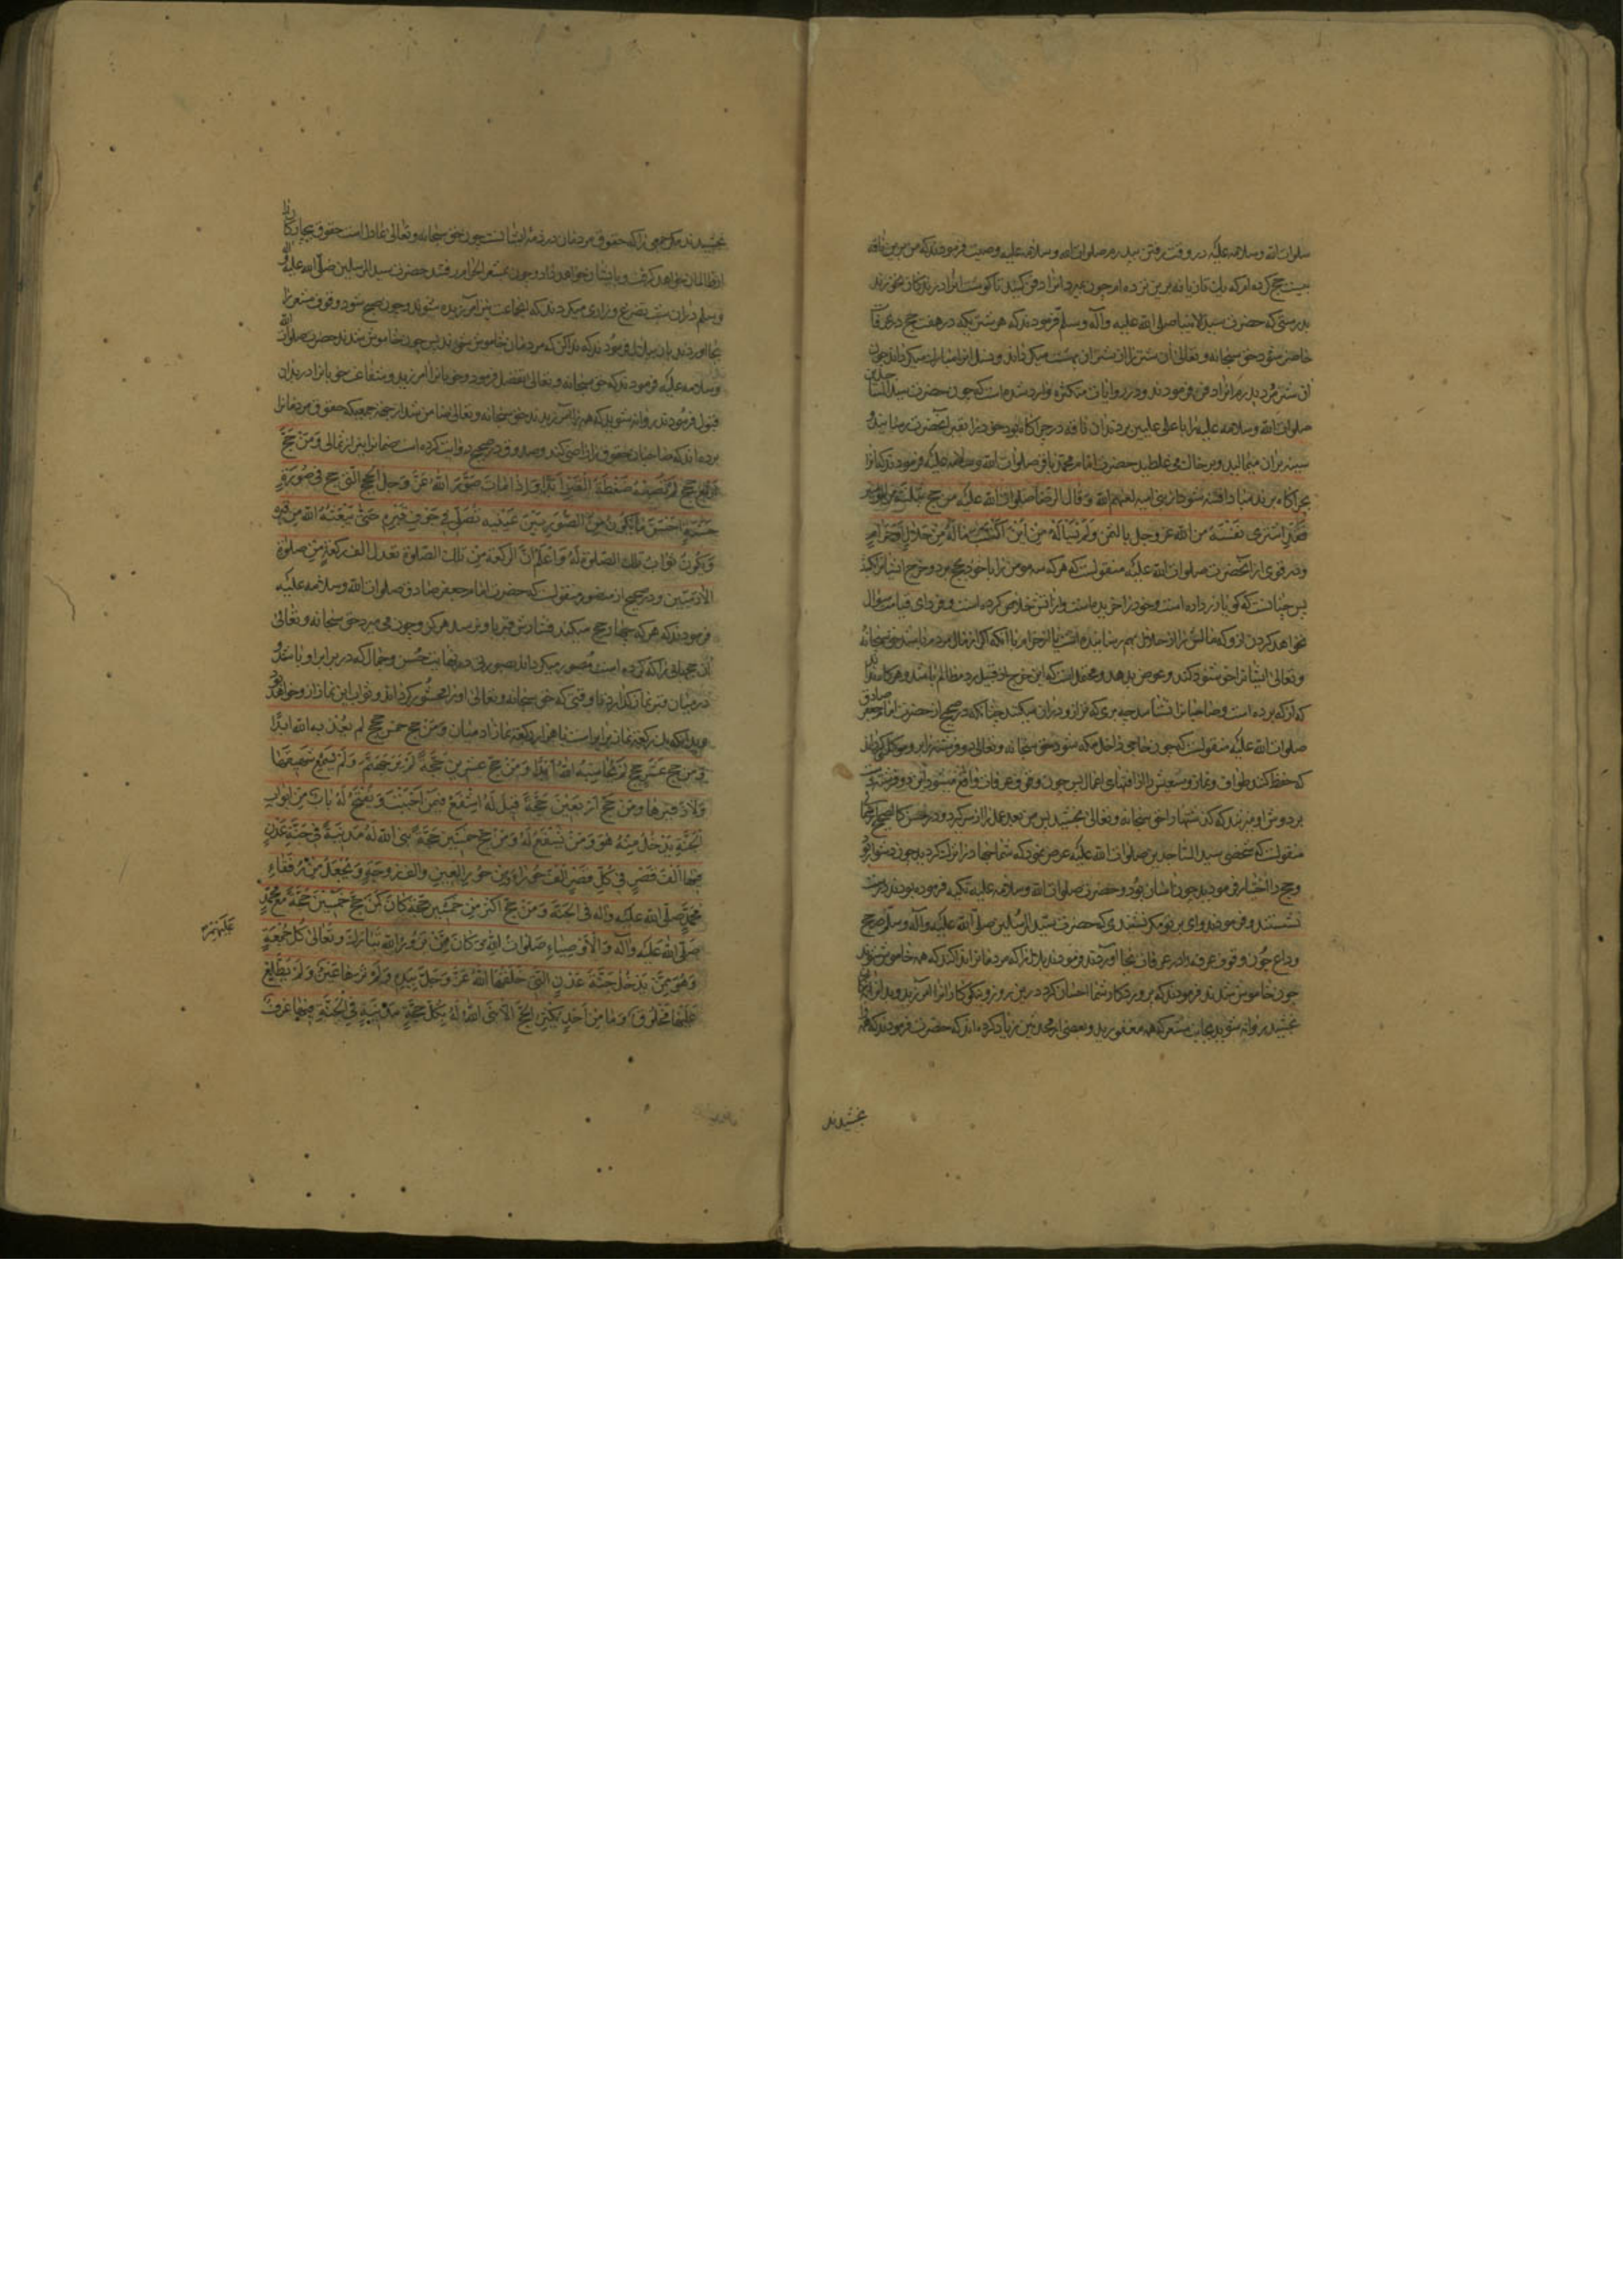 صلوات الله وسلامه علیه در وقت رفتن پدرم صلوات الله وسلامه علیه وصیت فرمودند که من برین ناقه
بیست حج کرده ام که یک تازیانه برین نزده ام چون بمیرد انرا دفن کنید تا گوشت انرا درندکان نخورند
بدرستی که حضرت سید الانبیا صلی الله علیه وآله وسلم فرمودند که هر شتریکه در هفت حج در عرفات
حاضر شود حق سبحانه وتعالی آن شتر را از شتران بهشت میکرداند ونسل انرا مبارک میکرداند چون
ان شتر مرد پدرم انرا دفن فرمودند ودر روایات متکثره وارد شده است که چون حضرت سید الساجدین
صلوات الله وسلامه علیه را باعلی علیین بردند ان ناقه در چراکاه بود خود را بقبر آنحضرت رسانید و
سینه بران میمالید وبر خاک می غلطید حضرت امام محمد باقر صلوات الله وسلامه علیه فرمودند که انرا
بچراکاه برند مبادا فتنه شود از بنی امیه لعنهم الله وقال الرضا صلوات الله علیه من حج بثلثة من المؤمنین
فقد اشتری نفسه من الله عز وجل بالثمن ولم یسأله من این اکتسب ماله من حلال او حرام
ودر قوی از آنحضرت صلوات الله علیه منقولست که هر که سه مومن را با خود بحج برد وخرج ایشانرا کشد
پس چنانست که کویا زر داده است وخود را خریده است واز اتش خلاص کرده است وفردای قیامت سؤال
نخواهد کردن ازو که مالش را از حلال بهم رسانیده است یا از حرام با آنکه اکر از مال مردم باشد حق سبحانه
وتعالی ایشانرا خوشنود کند وعوض بدهد ومحتملست که این خرج از قبیل رد مظالم باشد وهرکاه نداند
که از که برده است وصاحبانرا نشناسد چه بری که فرازو در ان میکند چنانکه در صحیح از حضرت امام جعفر صادق
صلوات الله علیه منقولست که چون حاجی داخل مکه شود حق سبحانه وتعالی دو فرشته را برو موکل کرداند
که حفظ کنند طواف ونماز وسعیش را از افتهای اعمال پس چون وقوف عرفات واقع میشود آن دو فرشته دست
بر دوش او میزنند که کذشتها را حق سبحانه وتعالی بخشید پس من بعد عمل را از سر کرد ودر حسن کالصحیح
منقولست که شخصی بسید الساجدین صلوات الله علیه عرض نمود که شما جهاد را ترک کردید چون دشوار بود
وحج را اختیار فرمودید چون اسان بود وحضرت صلوات الله وسلامه علیه تکیه فرموده بودند درست
نشستند وفرمودند وای بر تو مکر نشنیدی که حضرت سید المرسلین صلی الله علیه وآله وسلم در حج
وداع چون وقوف عرفه را در عرفات بجا آوردند فرمودند بلال را که مردمانرا ندا کند که همه خاموش شوند
چون خاموش شدند فرمودند که پروردکار شما احسان کرد درین روز ونیکوکارانرا آمرزید وبدانرا بنیکان
بخشید روانه شوید بجانب مشعر که همه مغفورید وبعضی از محدثین زیاد کرده اند که حضرت فرمودند که همه را
بخشیدند
بخشیدند مکر جمعی را که حقوق مردمان در ذمه ایشانست چون حق سبحانه وتعالی عادل است حقوق بیچارکانرا
از ظالمان خواهد کرفت وبایشان خواهد داد وچون بمشعر الحرام رفتند حضرت سید المرسلین صلی الله علیه وآله
وسلم دران شب تضرع وزاری میکردند که این جماعت نیز آمرزیده شوند وچون صبح شود وقوف مشعر را
بجا آوردند باز ببلال فرمودند که ندا کن که مردمان خاموش شوند پس چون خاموش شدند حضرت صلوات الله
وسلامه علیه فرمودند که حق سبحانه وتعالی تفضل فرمود وخوبانرا آمرزید وشفاعت خوبانرا در بدان
قبول فرمودند روانه شوید که همه را آمرزیدند حق سبحانه وتعالی ضامن شد از جهة جمعیکه حقوق مردمانرا
برده اند که صاحبان حقوق را راضی کند وصدوق در صحیح روایت کرده است ضمانرا نیز از تعالی ومن حج
اربع حجج لم تصبه ضغطة القبر ابدا واذا مات صور الله عز وجل الحج التی حج فی صورة
حسنة احسن ما یکون من الصور بین عینیه تصلی فی جوف قبره حتی یبعثه الله من قبره
ویکون ثواب تلک الصلوة له واعلم ان الرکعة من تلک الصلوة تعدل الف رکعة من صلوة
الآدمیین ودر صحیح از منصور منقولست که حضرت امام جعفر صادق صلوات الله وسلامه علیه
فرمودند که هر که چهار حج میکند فشارش قبر باو نرسد هرکز وچون می میرد حق سبحانه وتعالی
ان حجهایی را که کرده است مصور میکرداند بصورتی در نهایت حسن وجمال که در برابر او باشد و
در میان قبر نماز کذارد تا وقتی که حق سبحانه وتعالی او را محشور کرداند وثواب این نماز از و خواهد بود
وبدانکه یک رکعة نماز برابر است با هزار رکعة نماز ادمیان ومن حج خمس حجج لم یعذبه الله ابدا
ومن حج عشر حجج لم یحاسبه الله ابدا ومن حج عشرین حجة لم یر جهنم ولم یسمع شهیقها
ولا زفیرها ومن حج اربعین حجة قیل له اشفع فیمن احببت ویفتح له باب من ابواب
الجنة یدخل منه هو ومن یشفع له ومن حج خمسین حجة بنی الله له مدینة فی جنة عدن
فیها الف قصر فی کل قصر الف حوراء من حور العین والف زوجة ویجعل من رفقاء
محمد صلی الله علیه وآله فی الجنة ومن حج اکثر من خمسین حجة کان کمن حج خمسین حجة مع محمد
صلی الله علیه وآله والاوصیاء صلوات الله علیهم وکان ممن یزوره الله تبارک وتعالی کل جمعة
وهو ممن یدخل جنة عدن التی خلقها الله عز وجل بیده ولم ترها عین ولم یطلع
علیها مخلوق وما من احد یکثر الحج الا بنی الله له بکل حجة مدینة فی الجنة فیها غرف